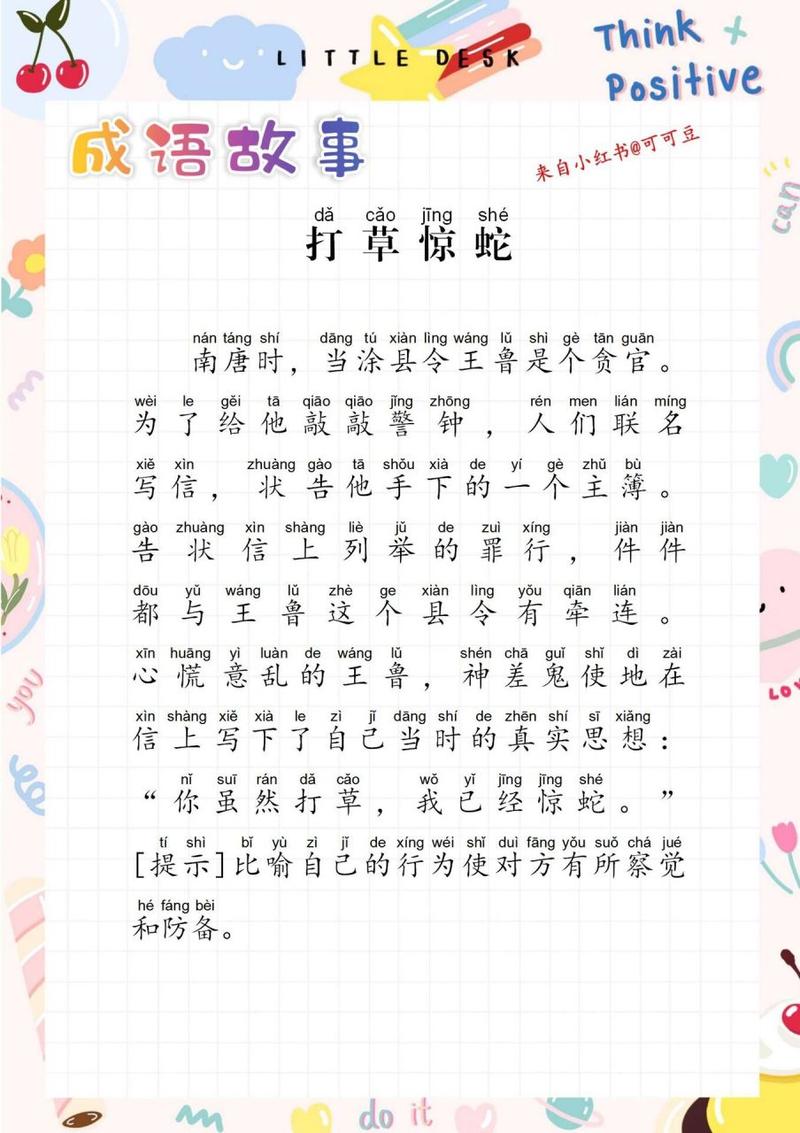 LITTLE DESK
Think
Positive
成语故事
来自小红书@可可豆
dǎ cǎo jīng shé
打草惊蛇
can
nán táng shí dāng tú xiàn lìng wáng lǔ shì gè tān guān
南唐时，当涂县令王鲁是个贪官。
wèi le gěi tā qiāo qiāo jǐng zhōng rén men lián míng
为了给他敲敲警钟，人们联名
xiě xìn zhuàng gào tā shǒu xià de yí gè zhǔ bù
写信，状告他手下的一个主簿。
gào zhuàng xìn shàng liè jǔ de zuì xíng jiàn jiàn
告状信上列举的罪行，件件
dōu yǔ wáng lǔ zhè ge xiàn lìng yǒu qiān lián
都与王鲁这个县令有牵连。
xīn huāng yì luàn de wáng lǔ shén chā guǐ shǐ dì zài
心慌意乱的王鲁，神差鬼使地在
you
xìn shàng xiě xià le zì jǐ dāng shí de zhēn shí sī xiǎng
信上写下了自己当时的真实思想：
nǐ suī rán dǎ cǎo wǒ yǐ jīng jīng shé
“你虽然打草，我已经惊蛇。”
tí shì bǐ yù zì jǐ de xíng wéi shǐ duì fāng yǒu suǒ chá jué
[提示]比喻自己的行为使对方有所察觉
hé fáng bèi
和防备。
do it